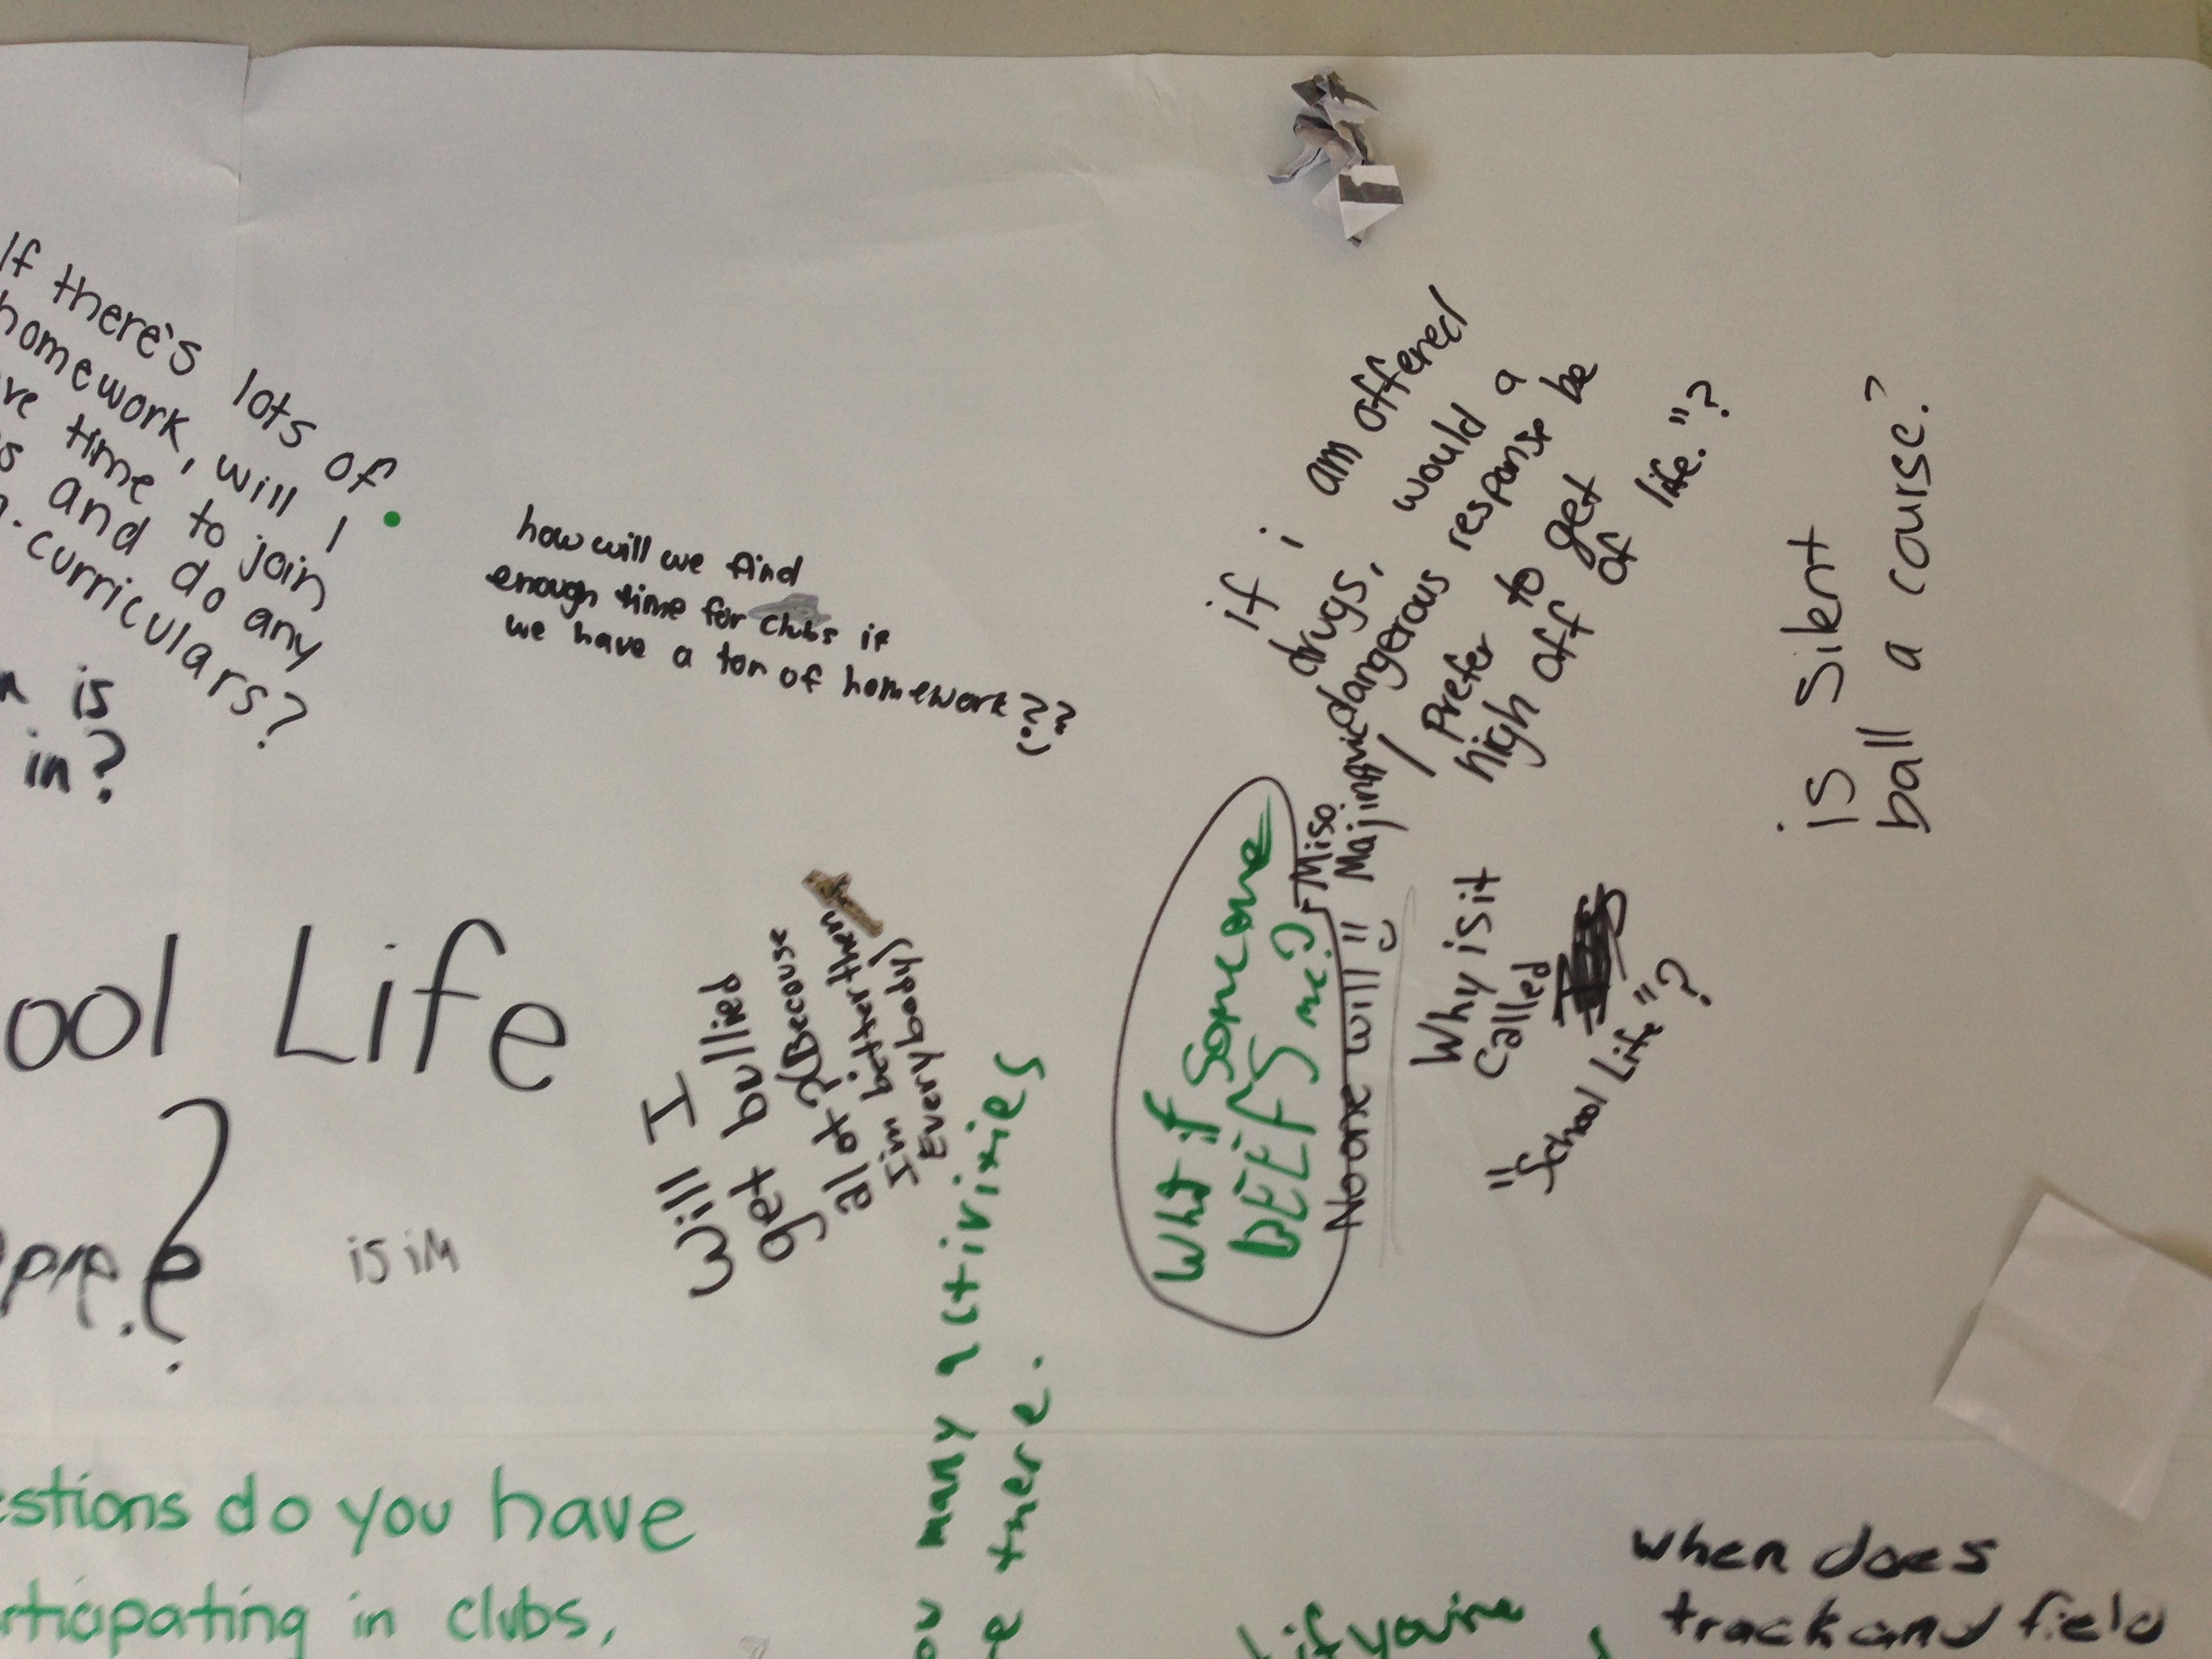 If there's lots of
homework, will I
ve time to join
s and do any
curriculars?
is
in?
how will we find
enough time for clubs if
we have a ton of homework???
if i am offered
drugs, would a
dangerous response be
I prefer to get
high off of life."?
is Silent
ball a course?
ool Life
?
is im
Will I
get bullied
alot? (Beccause
I'm better then
Everybody)
many activities
e there.
What if someone
BEEFS me?
Noone will
Miso
Why is it
Called
"School Life"?
estions do you have
rticipating in clubs,
if you're
when does
track and field